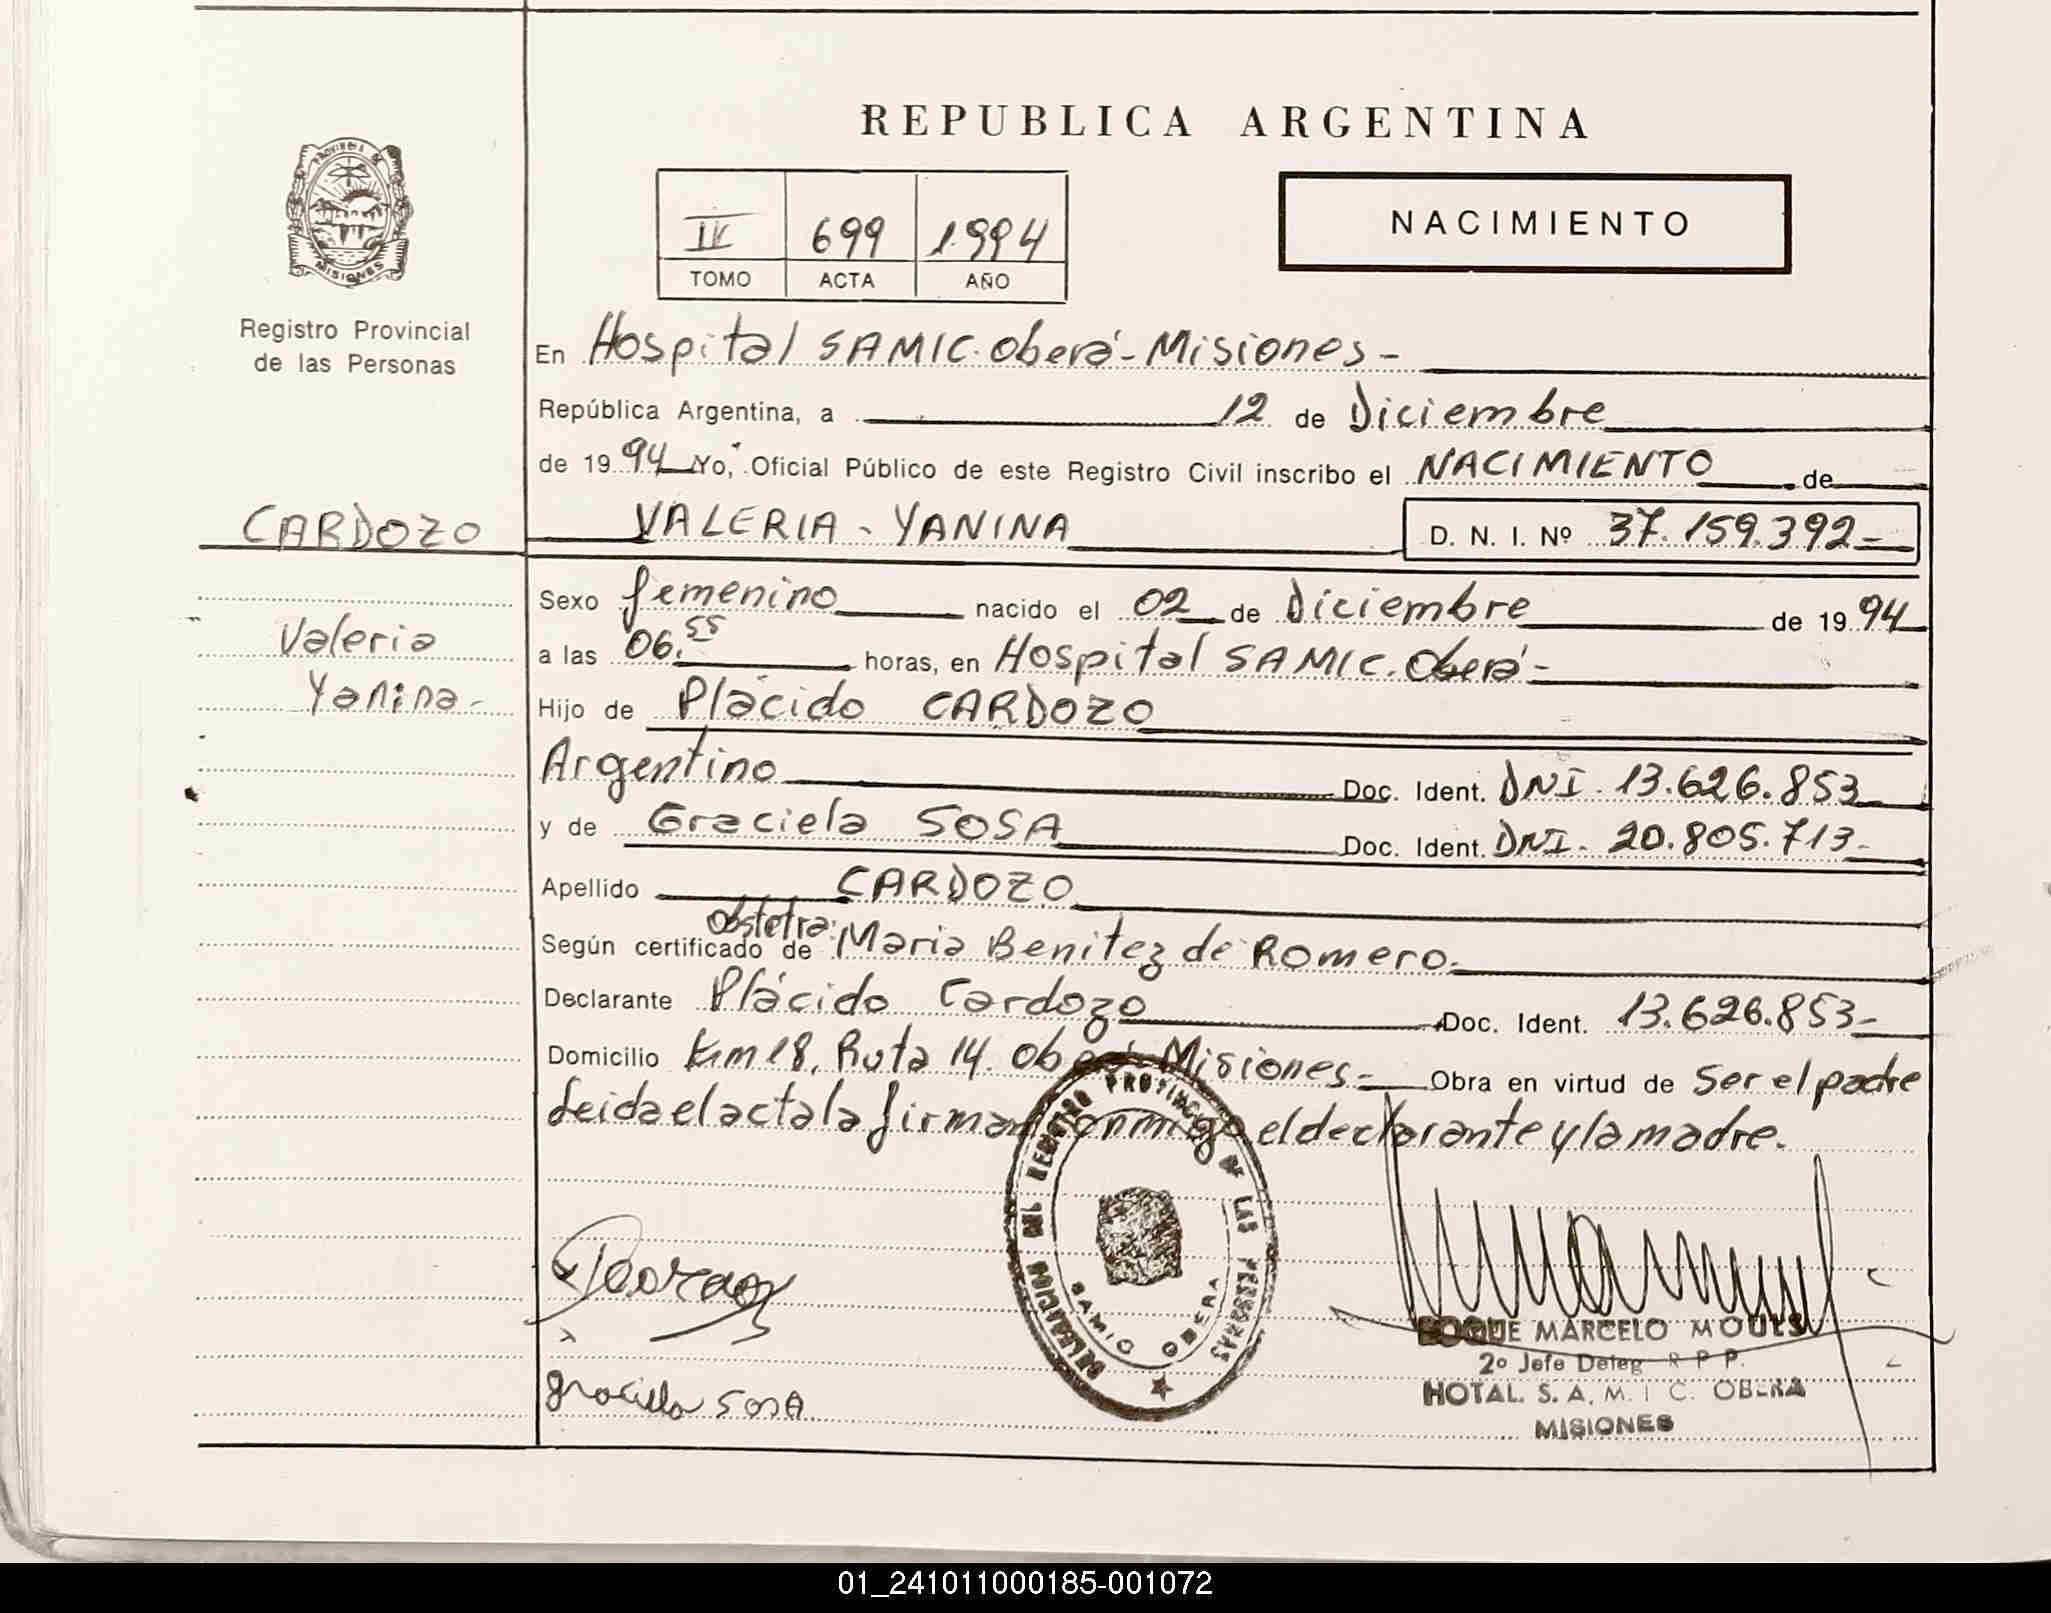 REPUBLICA ARGENTINA
PROVINCIA DE
MISIONES
Registro Provincial
de las Personas
IV 699 1994
TOMO ACTA AÑO
NACIMIENTO
En Hospital SAMIC. Oberá - Misiones -
República Argentina, a 12 de Diciembre
de 1994 Yo, Oficial Público de este Registro Civil inscribo el NACIMIENTO de
CARDOZO
VALERIA - YANINA D. N. I. Nº 37.159.392-
Valeria
Yanina-
Sexo femenino nacido el 02 de Diciembre de 1994
a las 06.55 horas, en Hospital SAMIC. Oberá -
Hijo de Plácido CARDOZO
Argentino Doc. Ident. DNI. 13.626.853
y de Graciela SOSA Doc. Ident. DNI. 20.805.713.
Apellido CARDOZO
Según certificado de obstetra: Maria Benitez de Romero.
Declarante Plácido Cardozo Doc. Ident. 13.626.853-
Domicilio Km 18, Ruta 14. Oberá Misiones - Obra en virtud de Ser el padre
Leida el acta la firman conmigo el declarante y la madre.
DELEGACION DEL REGISTRO PROVINCIAL DE LAS PERSONAS
SAMIC OBERA
graciela SOSA
ROQUE MARCELO
2º Jefe Deleg R P P.
HOTAL. S. A. M. I C. OBERA
MISIONES
01_241011000185-001072